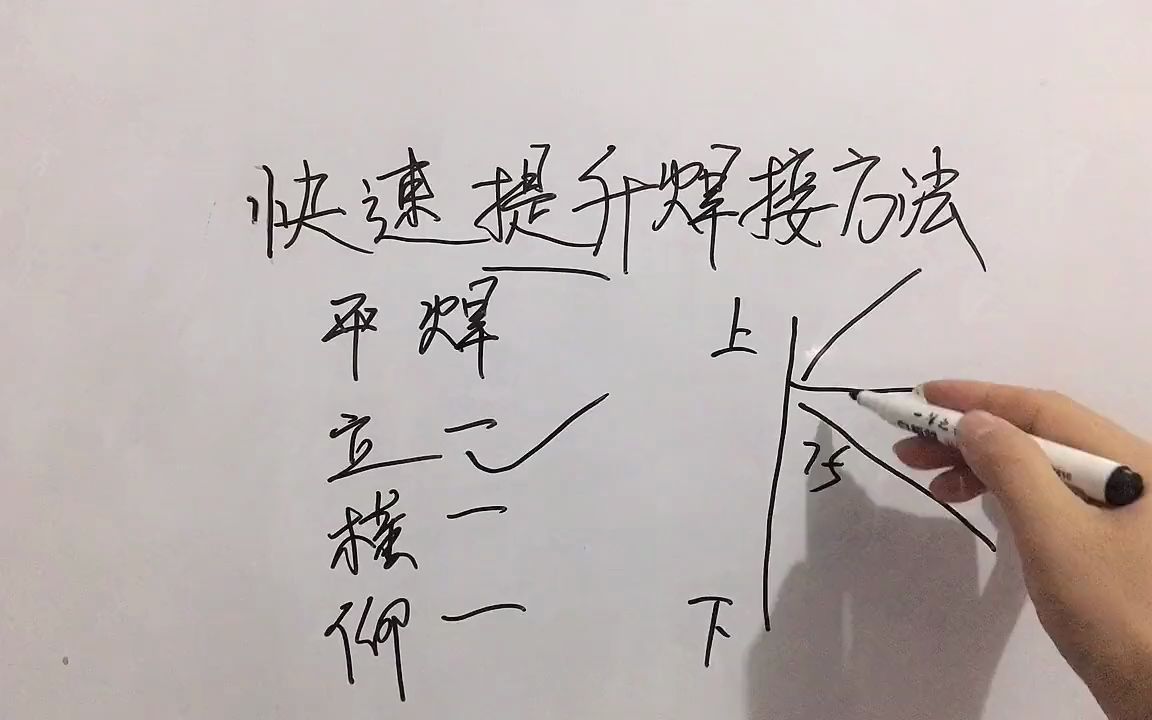 快速提升焊接方法
平焊
立一
横一
仰一
上
75
下